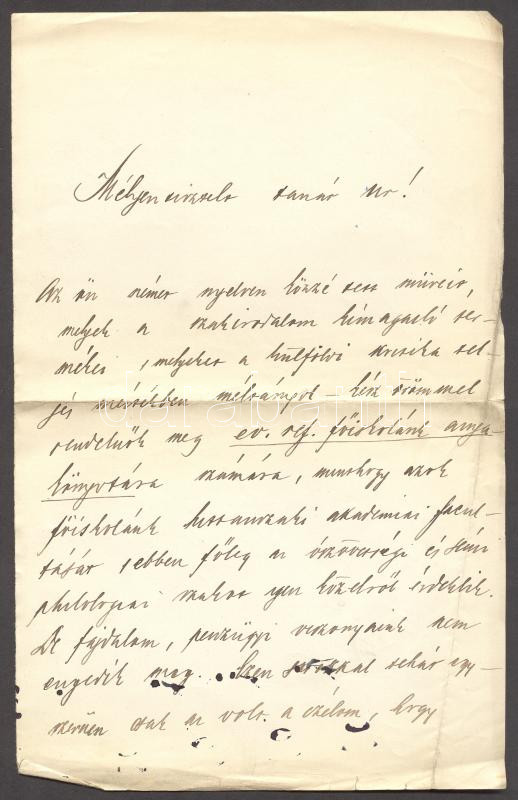 Mélyen tisztelt tanár úr!
Az ön német nyelven közzé tett műveit,
melyek a szakirodalom kimagasló ter-
mékei, melyeket a külföldi kritika tel-
jes mértékben méltányolt – kész örömmel
rendelnők meg ev. ref. főiskolánk anya-
könyvtára számára, minthogy azok
főiskolánk hittanszaki akademiai facul-
tását s ebben főleg az ószövetségi és sémi
philologiai szakot igen közelről érdeklik.
De fájdalom, pénzügyi viszonyaink nem
engedik meg. Ezen sorokkal tehát egy-
szerűen csak az volt a czélom, hogy
darabanth